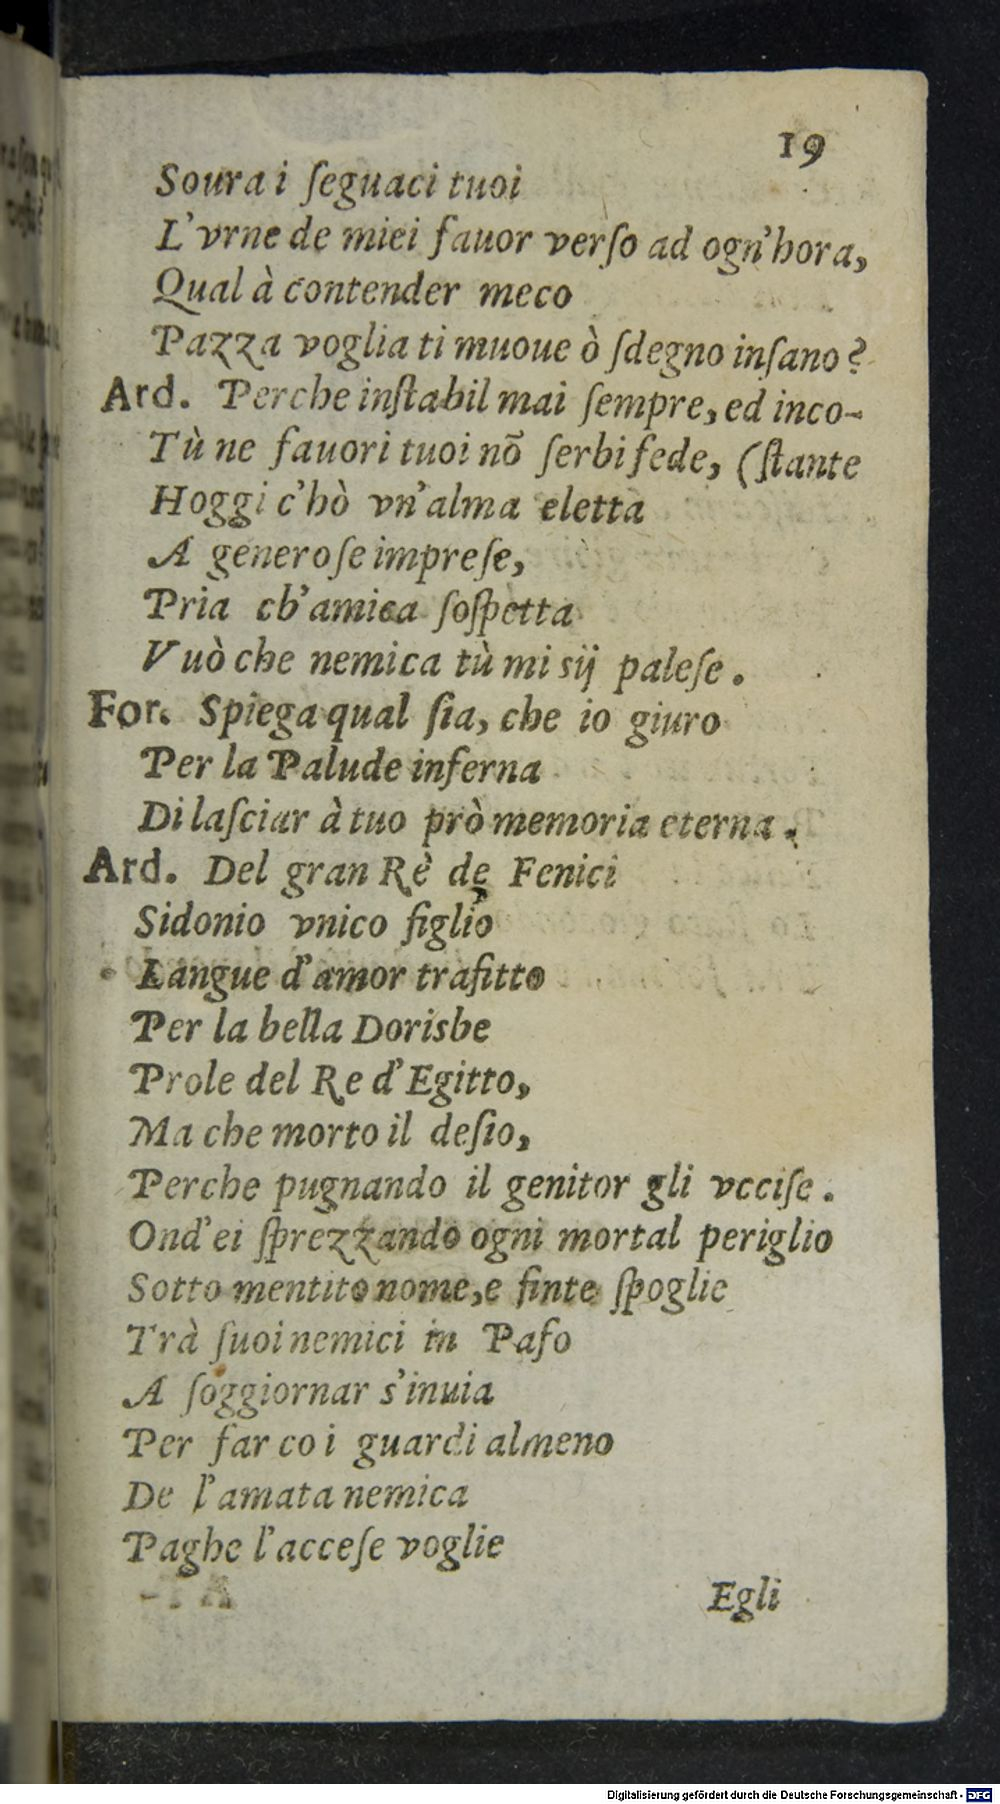 19
Soura i ſeguaci tuoi
L'vrne de miei fauor verſo ad ogn'hora,
Qual à contender meco
Pazza voglia ti muoue ò ſdegno inſano?
Ard. Perche inſtabil mai ſempre, ed inco-
Tù ne fauori tuoi nõ ſerbi fede, (ſtante
Hoggi c'hò vn'alma eletta
A generoſe impreſe,
Pria ch'amica ſoſpetta
Vuò che nemica tù mi sij paleſe.
For. Spiega qual ſia, che io giuro
Per la Palude inferna
Di laſciar à tuo prò memoria eterna.
Ard. Del gran Rè de Fenici
Sidonio vnico figlio
Langue d'amor trafitto
Per la bella Dorisbe
Prole del Re d'Egitto,
Ma che morto il deſio,
Perche pugnando il genitor gli vcciſe.
Ond'ei ſprezzando ogni mortal periglio
Sotto mentito nome, e finte ſpoglie
Trà ſuoi nemici in Pafo
A ſoggiornar s'inuia
Per far co i guardi almeno
De l'amata nemica
Paghe l'acceſe voglie
Egli
Digitalisierung gefördert durch die Deutsche Forschungsgemeinschaft - DFG